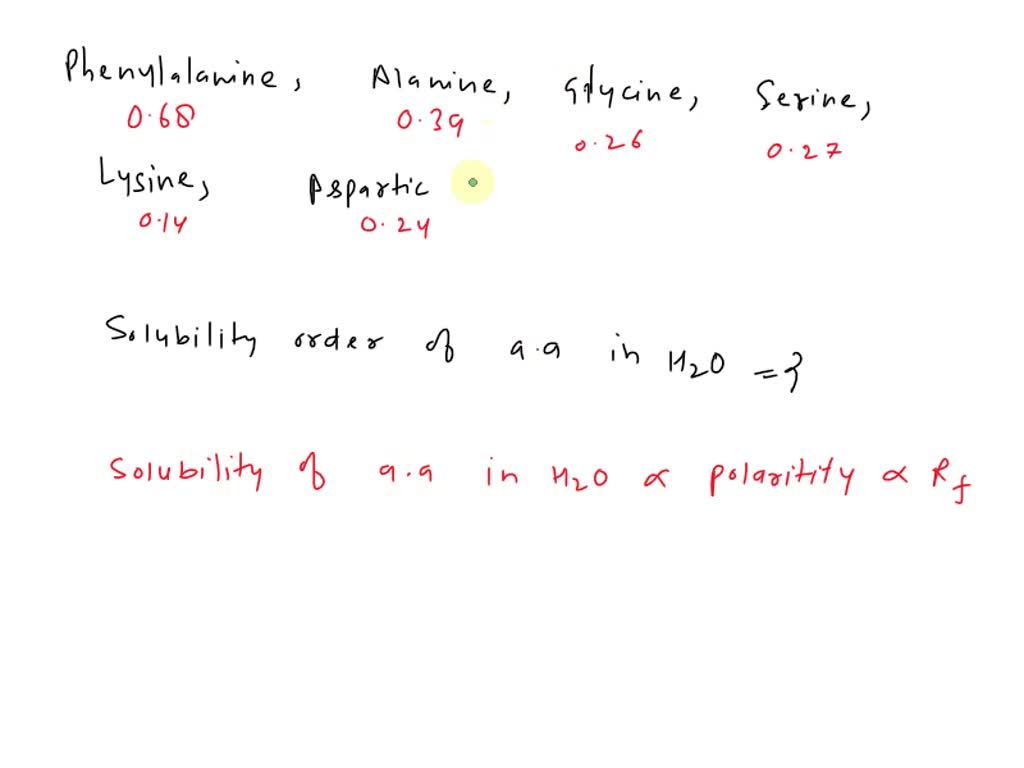 Phenylalanine, Alanine, Glycine, Serine,
0.68 0.39 0.26 0.27
Lysine, Aspartic
0.14 0.24
Solubility order of a.a in H2O = ?
Solubility of a.a in H2O ∝ polaritity ∝ Rf